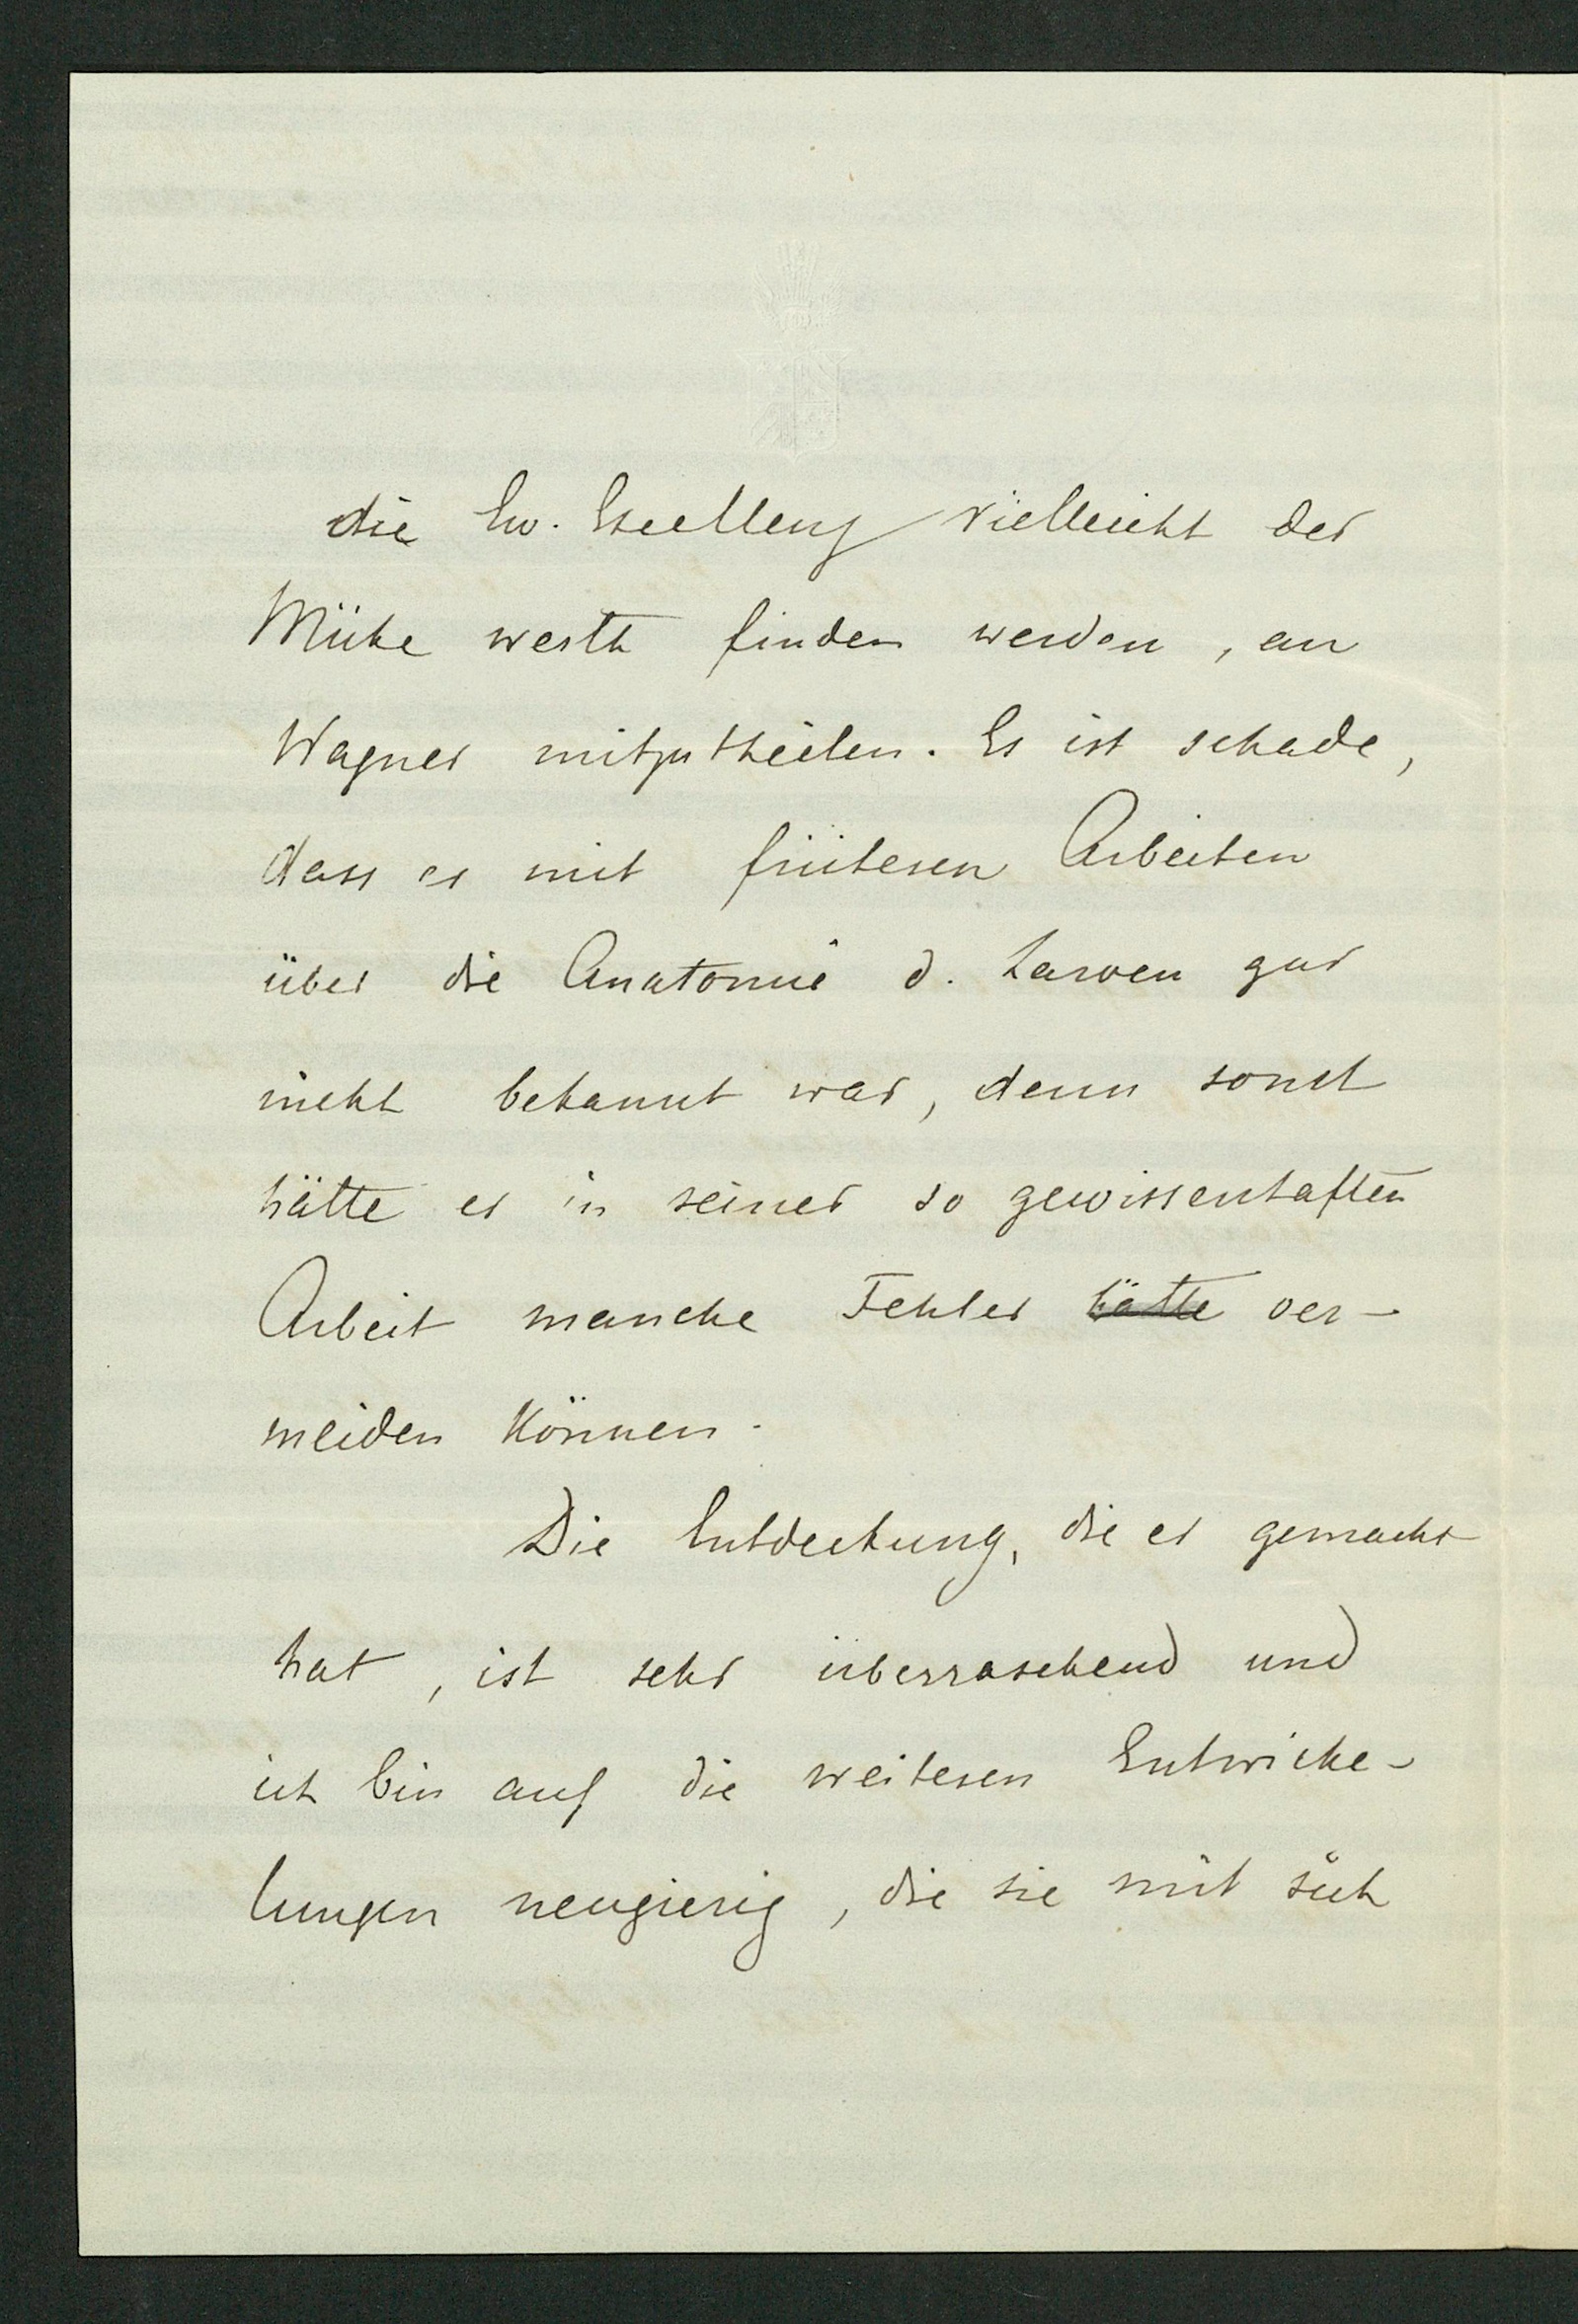 die Ew. Excellenz vielleicht der
Mühe werth finden werden, an
Wagner mitzutheilen. Es ist schade,
dass er mit früheren Arbeiten
über die Anatomie d. Larven gar
nicht bekannt war, denn sonst
hätte er in seiner so gewissenhaften
Arbeit manche Fehler hätte ver-
meiden können.
Die Entdeckung, die er gemacht
hat, ist sehr überraschend und
ich bin auf die weiteren Entwicke-
lungen neugierig, die sie mit sich